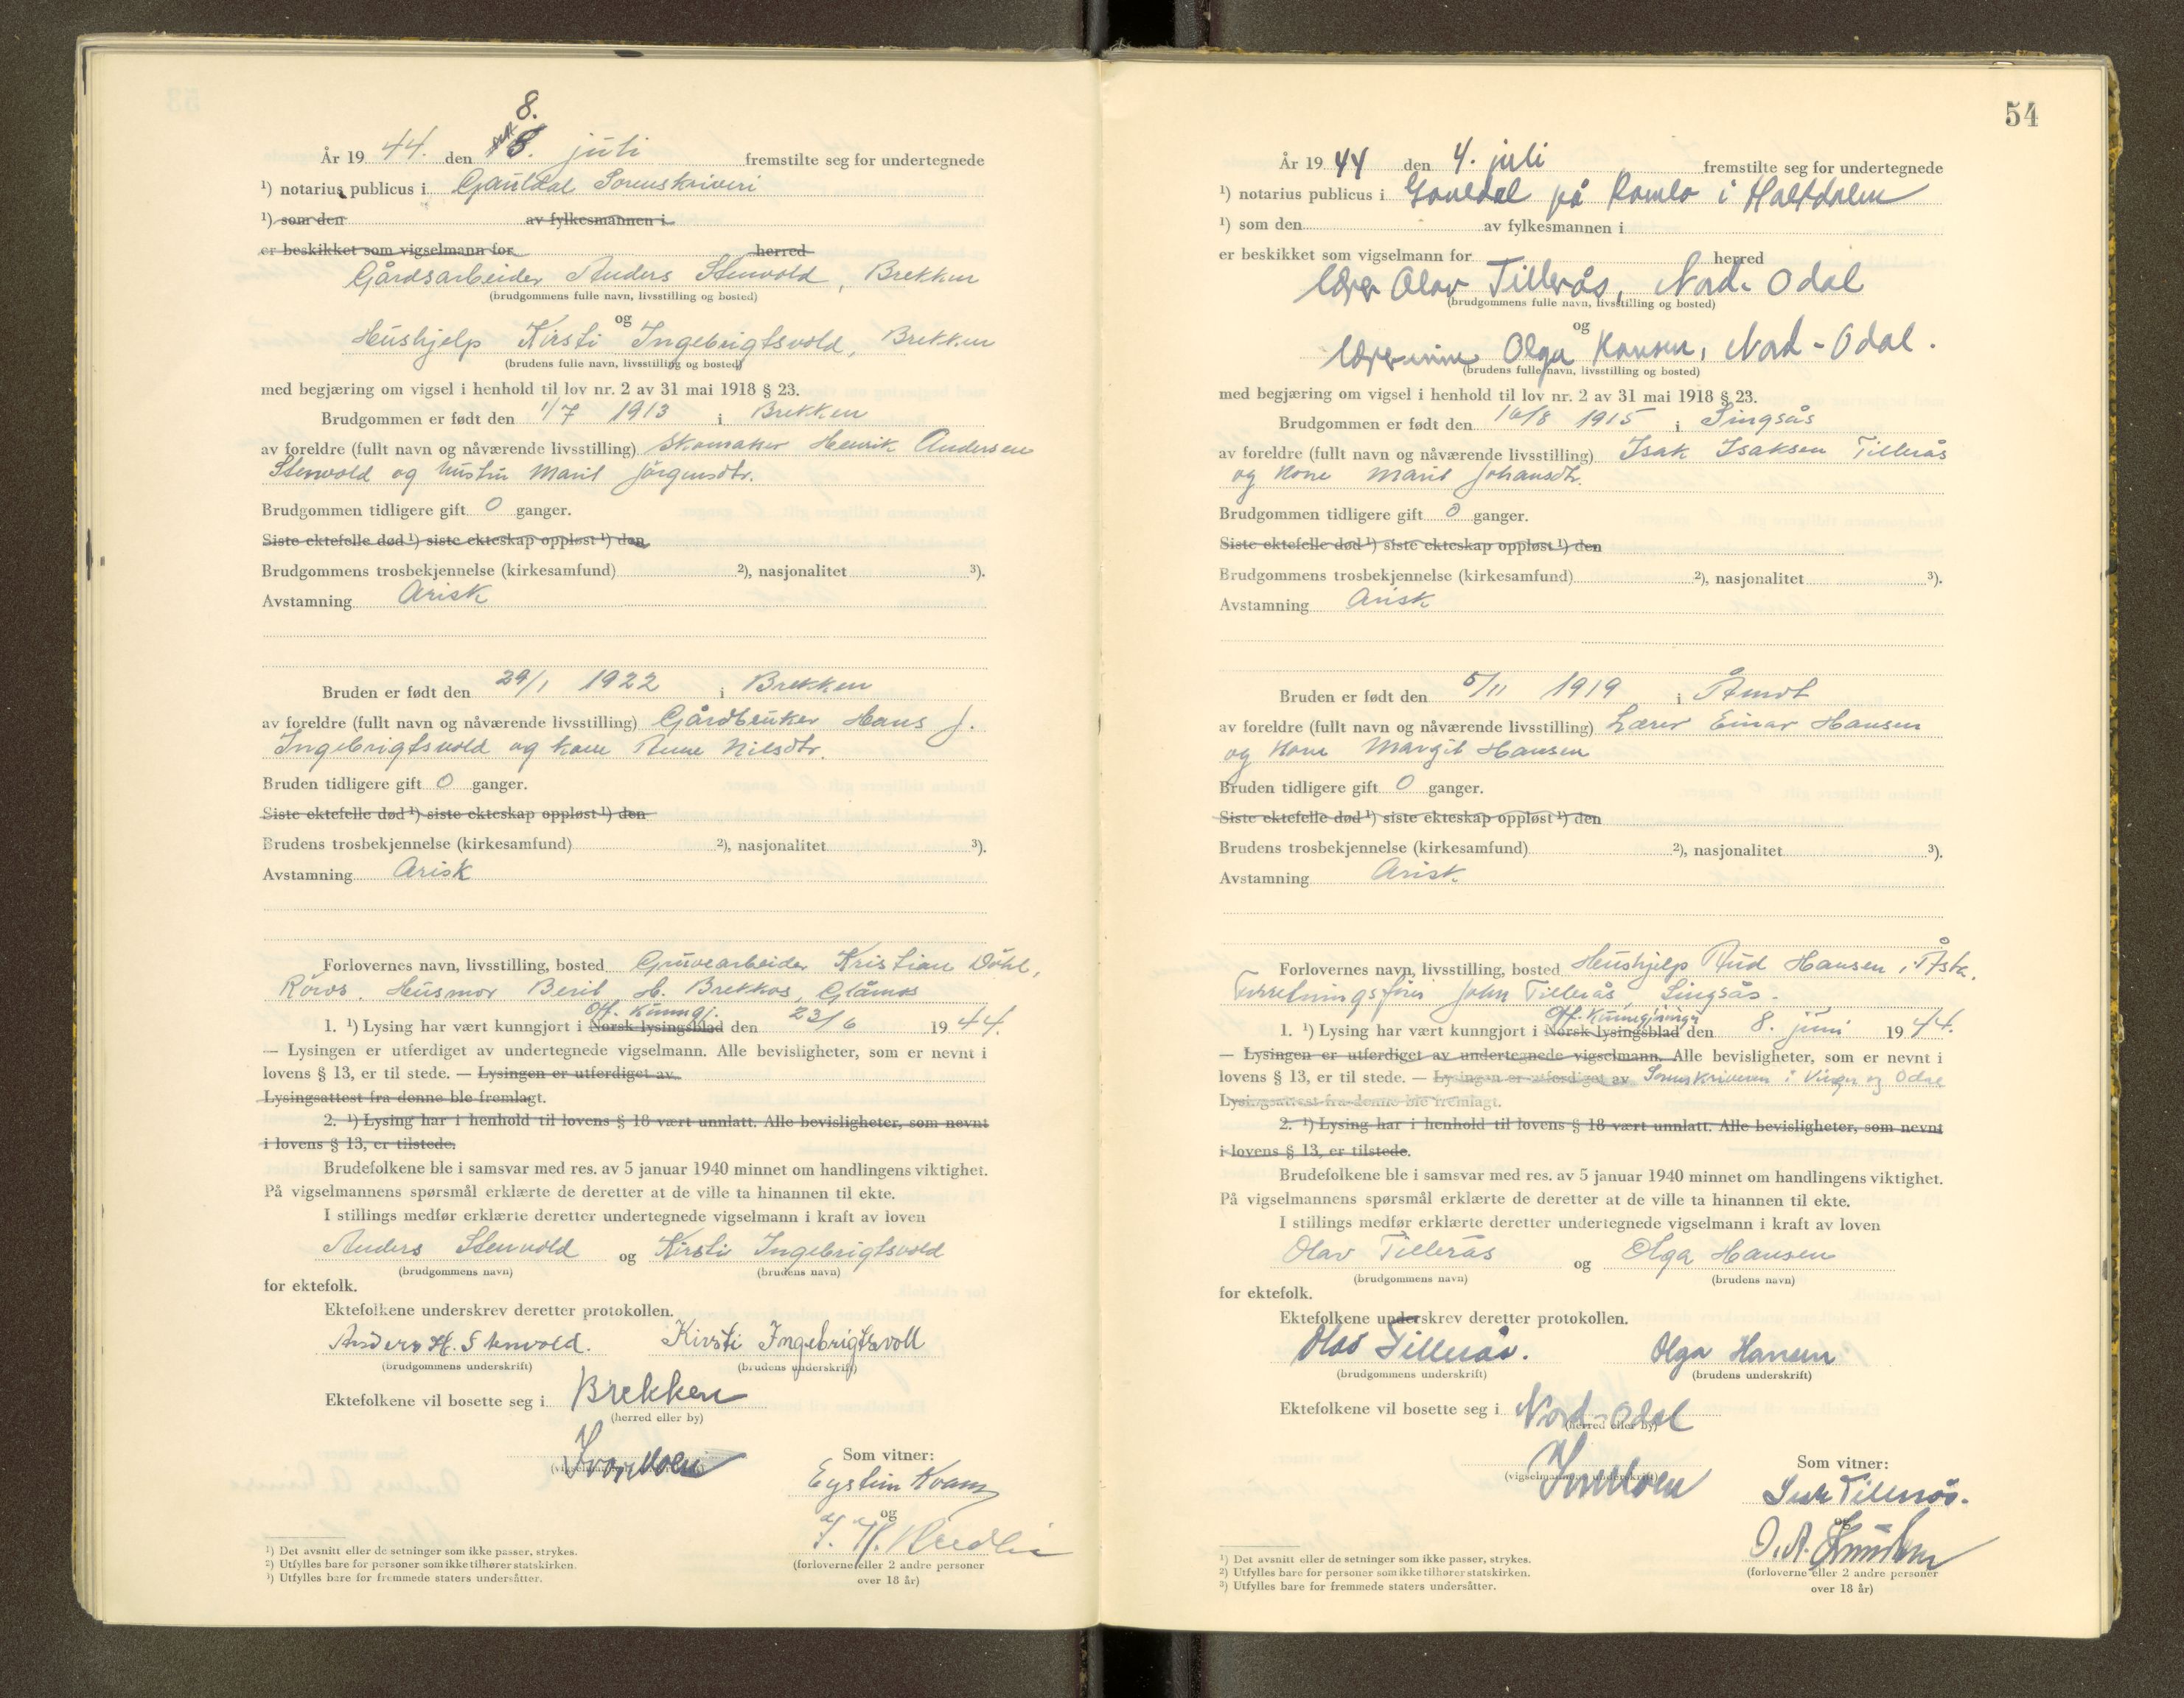 8.
År 19 44. den 8. juli fremstilte seg for undertegnede
¹) notarius publicus i Gauldal Sorenskriveri
¹) som den av fylkesmannen i
er beskikket som vigselmann for herred
Gårdsarbeider Anders Stenvold, Brekken
(brudgommens fulle navn, livsstilling og bosted)
og
Hushjelp Kirsti Ingebrigtsvold, Brekken
(brudens fulle navn, livsstilling og bosted)
med begjæring om vigsel i henhold til lov nr. 2 av 31 mai 1918 § 23.
Brudgommen er født den 1/7 1913 i Brekken
av foreldre (fullt navn og nåværende livsstilling) Skomaker Henrik Andersen
Stenvold og hustru Marit Jörgensdtr.
Brudgommen tidligere gift 0 ganger.
Siste ektefelle død ¹) siste ekteskap oppløst ¹) den
Brudgommens trosbekjennelse (kirkesamfund) ²), nasjonalitet ³).
Avstamning Arisk
Bruden er født den 29/1 1922 i Brekken
av foreldre (fullt navn og nåværende livsstilling) Gårdbruker Hans J.
Ingebrigtsvold og kone Anne Nilsdtr.
Bruden tidligere gift 0 ganger.
Siste ektefelle død ¹) siste ekteskap oppløst ¹) den
Brudens trosbekjennelse (kirkesamfund) ²), nasjonalitet ³).
Avstamning Arisk
Forlovernes navn, livsstilling, bosted Gruvearbeider Kristian Döhl,
Röros. Husmor Berit H. Brekkos, Glåmos
Off. Kunngj.
1. ¹) Lysing har vært kunngjort i Norsk lysingsblad den 23/6 19 44.
— Lysingen er utferdiget av undertegnede vigselmann. Alle bevisligheter, som er nevnt i
lovens § 13, er til stede. — Lysingen er utferdiget av
Lysingsattest fra denne ble fremlagt.
2. ¹) Lysing har i henhold til lovens § 18 vært unnlatt. Alle bevisligheter, som nevnt
i lovens § 13, er tilstede.
Brudefolkene ble i samsvar med res. av 5 januar 1940 minnet om handlingens viktighet.
På vigselmannens spørsmål erklærte de deretter at de ville ta hinannen til ekte.
I stillings medfør erklærte deretter undertegnede vigselmann i kraft av loven
Anders Stenvold og Kirsti Ingebrigtsvold
(brudgommens navn) (brudens navn)
for ektefolk.
Ektefolkene underskrev deretter protokollen.
Anders H. Stenvold. Kirsti Ingebrigtsvoll
(brudgommens underskrift) (brudens underskrift)
Ektefolkene vil bosette seg i Brekken
(herred eller by)
Som vitner:
Eystein Kvam
og
(forloverne eller 2 andre personer
over 18 år)
¹) Det avsnitt eller de setninger som ikke passer, strykes.
²) Utfylles bare for personer som ikke tilhører statskirken.
³) Utfylles bare for fremmede staters undersåtter.
54
År 19 44 den 4. juli fremstilte seg for undertegnede
¹) notarius publicus i Gauldal på Ramlo i Haltdalen
¹) som den av fylkesmannen i
er beskikket som vigselmann for herred
lærer Olav Tillerås, Nord-Odal
(brudgommens fulle navn, livsstilling og bosted)
og
lærerinne Olga Hansen, Nord-Odal.
(brudens fulle navn, livsstilling og bosted)
med begjæring om vigsel i henhold til lov nr. 2 av 31 mai 1918 § 23.
Brudgommen er født den 16/8 1915 i Singsås
av foreldre (fullt navn og nåværende livsstilling) Isak Isaksen Tillerås
og kone Marit Johansdtr.
Brudgommen tidligere gift 0 ganger.
Siste ektefelle død ¹) siste ekteskap oppløst ¹) den
Brudgommens trosbekjennelse (kirkesamfund) ²), nasjonalitet ³).
Avstamning Arisk
Bruden er født den 5/11 1919 i Åmot
av foreldre (fullt navn og nåværende livsstilling) Lærer Einar Hansen
og kone Margit Hansen
Bruden tidligere gift 0 ganger.
Siste ektefelle død ¹) siste ekteskap oppløst ¹) den
Brudens trosbekjennelse (kirkesamfund) ²), nasjonalitet ³).
Avstamning Arisk.
Forlovernes navn, livsstilling, bosted Hushjelp Aud Hansen,
Forretningsförer John Tillerås, Singsås.
Off. Kunngjöringer
1. ¹) Lysing har vært kunngjort i Norsk lysingsblad den 8. juni 19 44.
— Lysingen er utferdiget av undertegnede vigselmann. Alle bevisligheter, som er nevnt i
lovens § 13, er til stede. — Lysingen er utferdiget av Sorenskriveren i Vinger og Odal
Lysingsattest fra denne ble fremlagt.
2. ¹) Lysing har i henhold til lovens § 18 vært unnlatt. Alle bevisligheter, som nevnt
i lovens § 13, er tilstede.
Brudefolkene ble i samsvar med res. av 5 januar 1940 minnet om handlingens viktighet.
På vigselmannens spørsmål erklærte de deretter at de ville ta hinannen til ekte.
I stillings medfør erklærte deretter undertegnede vigselmann i kraft av loven
Olav Tillerås og Olga Hansen
(brudgommens navn) (brudens navn)
for ektefolk.
Ektefolkene underskrev deretter protokollen.
Olav Tillerås. Olga Hansen
(brudgommens underskrift) (brudens underskrift)
Ektefolkene vil bosette seg i Nord-Odal
(herred eller by)
(vigselmannens underskrift)
Som vitner:
Tillerås.
og
(forloverne eller 2 andre personer
over 18 år)
¹) Det avsnitt eller de setninger som ikke passer, strykes.
²) Utfylles bare for personer som ikke tilhører statskirken.
³) Utfylles bare for fremmede staters undersåtter.